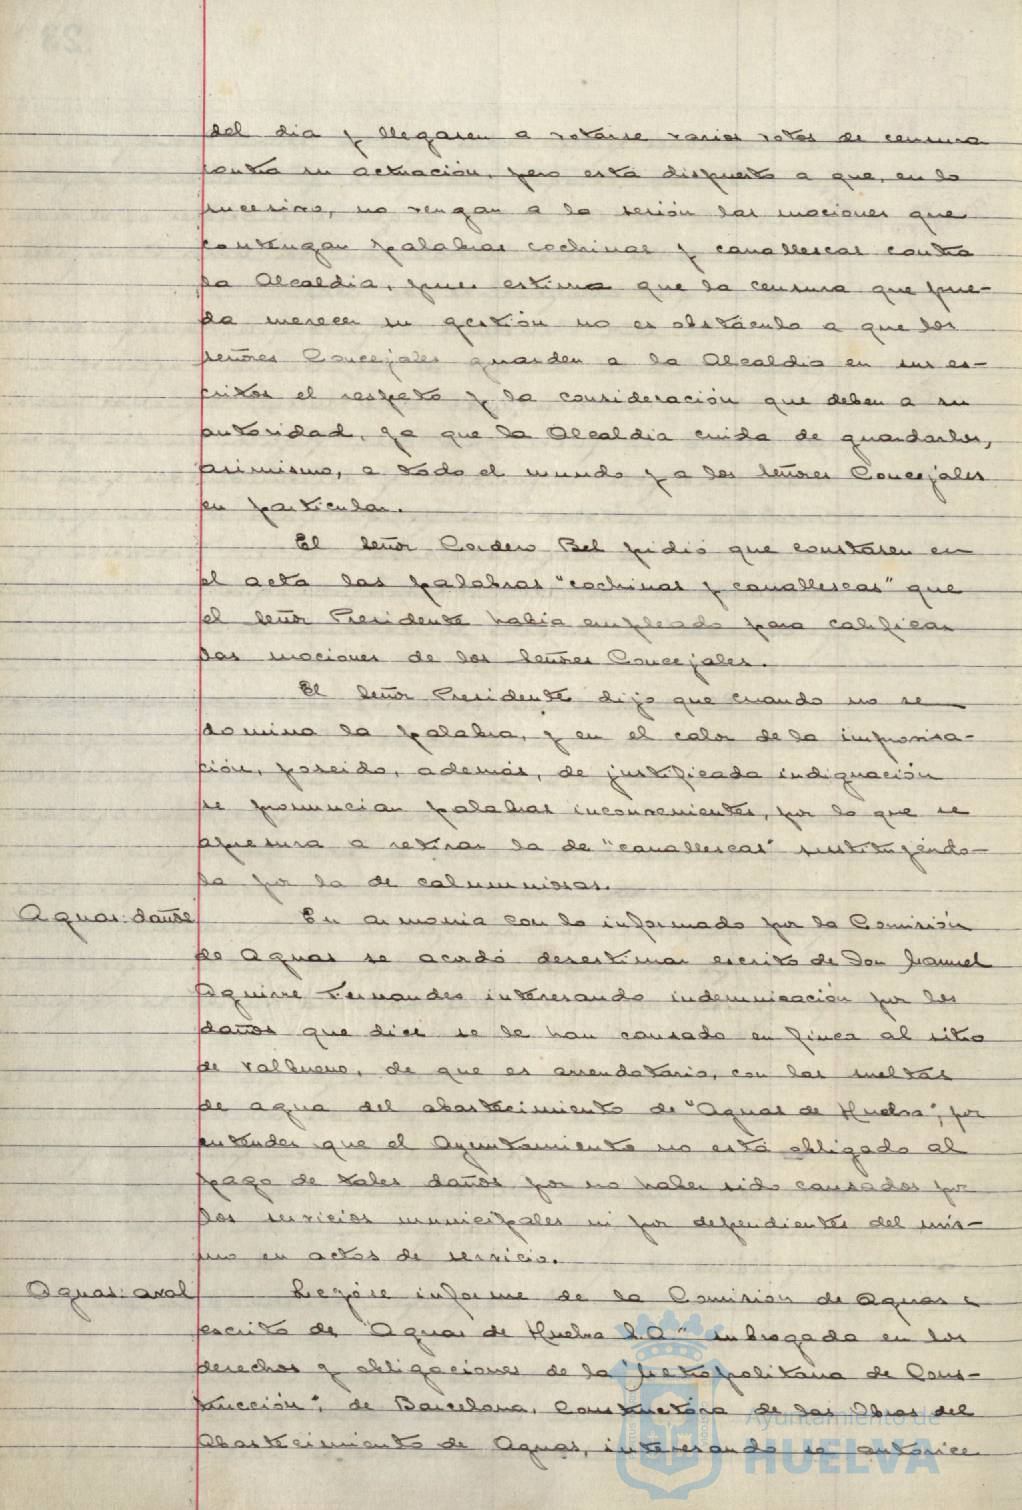 del dia y llegasen a votarse varios votos de censura
contra su actuación, pero está dispuesto a que, en lo
sucesivo, no vengan a la sesión las mociones que
contengan palabras cochinas y canallescas contra
la Alcaldia, pues estima que la censura que pue-
da merecer su gestión no es obstáculo a que los
señores Concejales guarden a la Alcaldia en sus es-
critos el respeto y la consideración que deben a su
autoridad, ya que la Alcaldia cuida de guardarlos,
asimismo, a todo el mundo y a los señores Concejales
en particular.
El señor Cordero Bel pidió que constasen en
el acta las palabras "cochinas y canallescas" que
el señor Presidente habia empleado para calificar
las mociones de los señores Concejales.
El señor Presidente dijo que cuando no se
domina la palabra, y en el calor de la improvisa-
ción, poseido, además, de justificada indignación
se pronuncian palabras inconvenientes, por lo que se
apresura a retirar la de "canallescas" sustituyéndo-
la por la de calumniosas.
Aguas: daños
En armonia con lo informado por la Comisión
de Aguas se acordó desestimar escrito de Don Manuel
Aguirre Fernandez interesando indemnización por los
daños que dice se le han causado en finca al sitio
de Valbueno, de que es arrendatario, con las sueltas
de agua del abastecimiento de "Aguas de Huelva", por
entender que el Ayuntamiento no está obligado al
pago de tales daños por no haber sido causados por
los servicios municipales ni por dependientes del mis-
mo en actos de servicio.
Aguas: aval
Leyóse informe de la Comisión de Aguas a
escrito de "Aguas de Huelva S.A." subrogada en los
derechos y obligaciones de la "Metropolitana de Cons-
trucción", de Barcelona, Constructora de las Obras del
Abastecimiento de Aguas, interesando se autorice
Ayuntamiento de
HUELVA